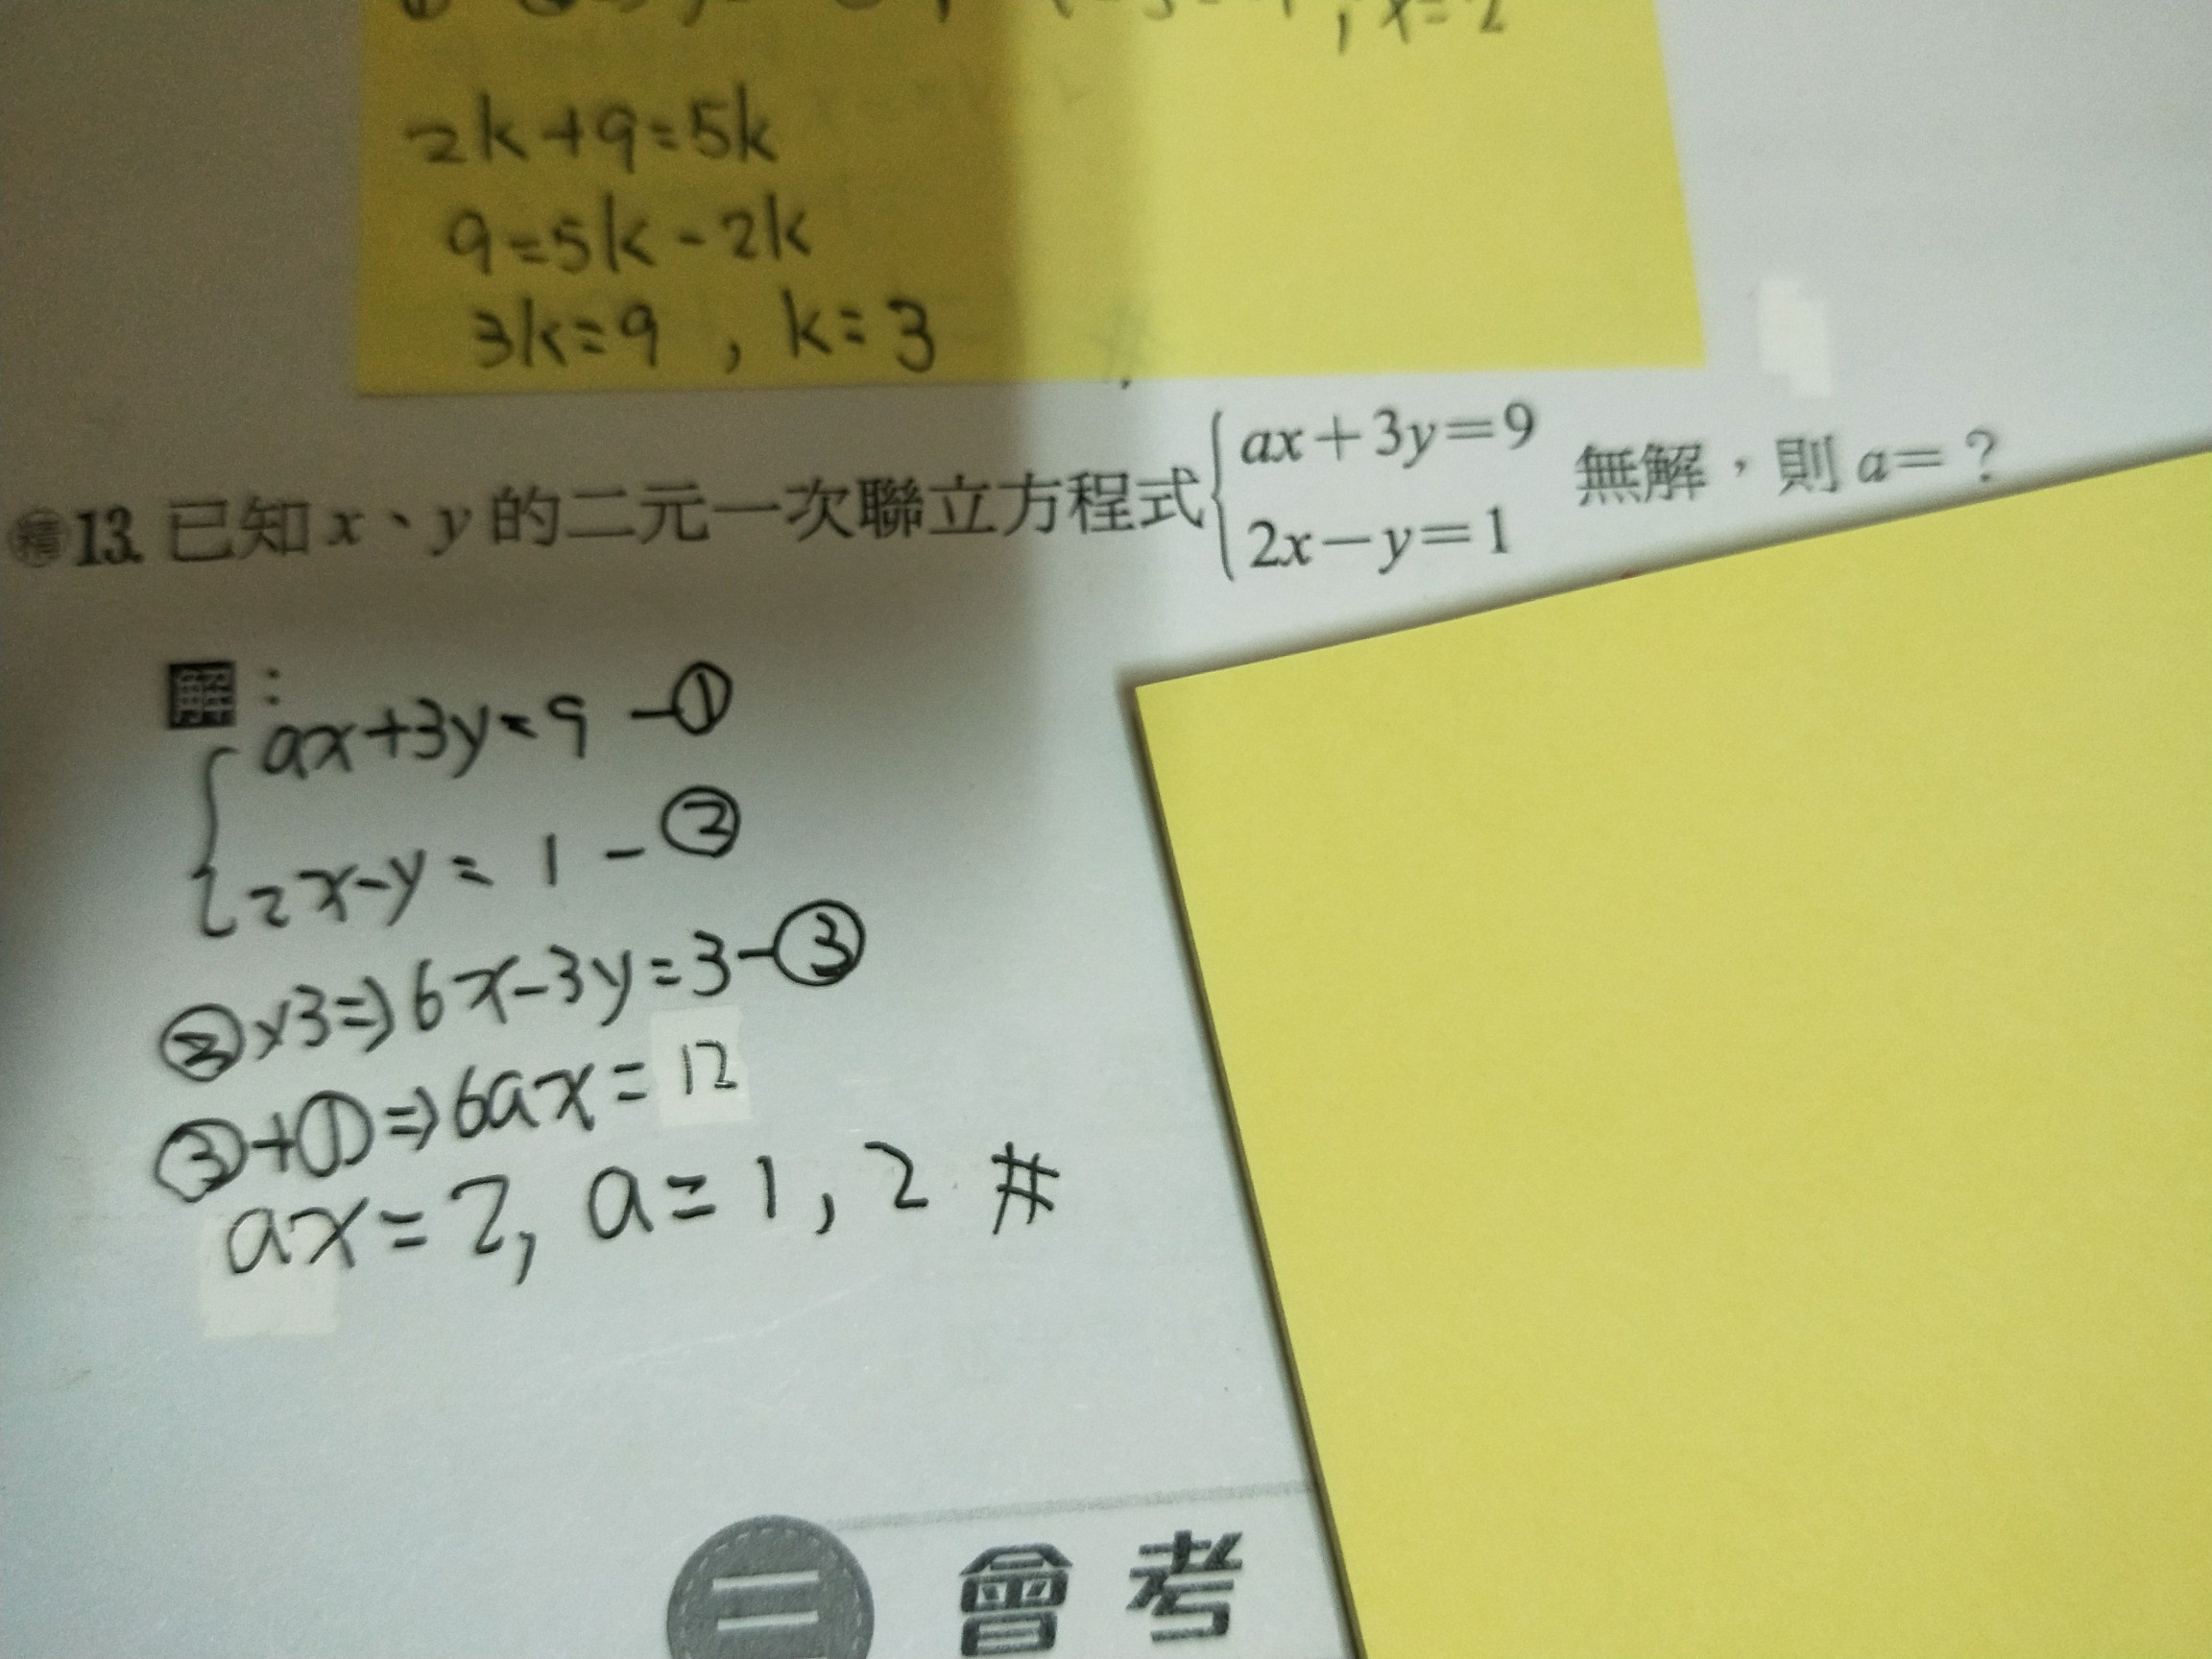 x=2
2k+9=5k
9=5k-2k
3k=9 , k=3
精13. 已知 x、y 的二元一次聯立方程式 { ax+3y=9 無解，則 a=？
2x-y=1
解：
ax+3y=9 -①
2x-y=1 -②
②x3⇒6x-3y=3-③
③+①⇒6ax=12
ax=2, a=1, 2 #
二 會考